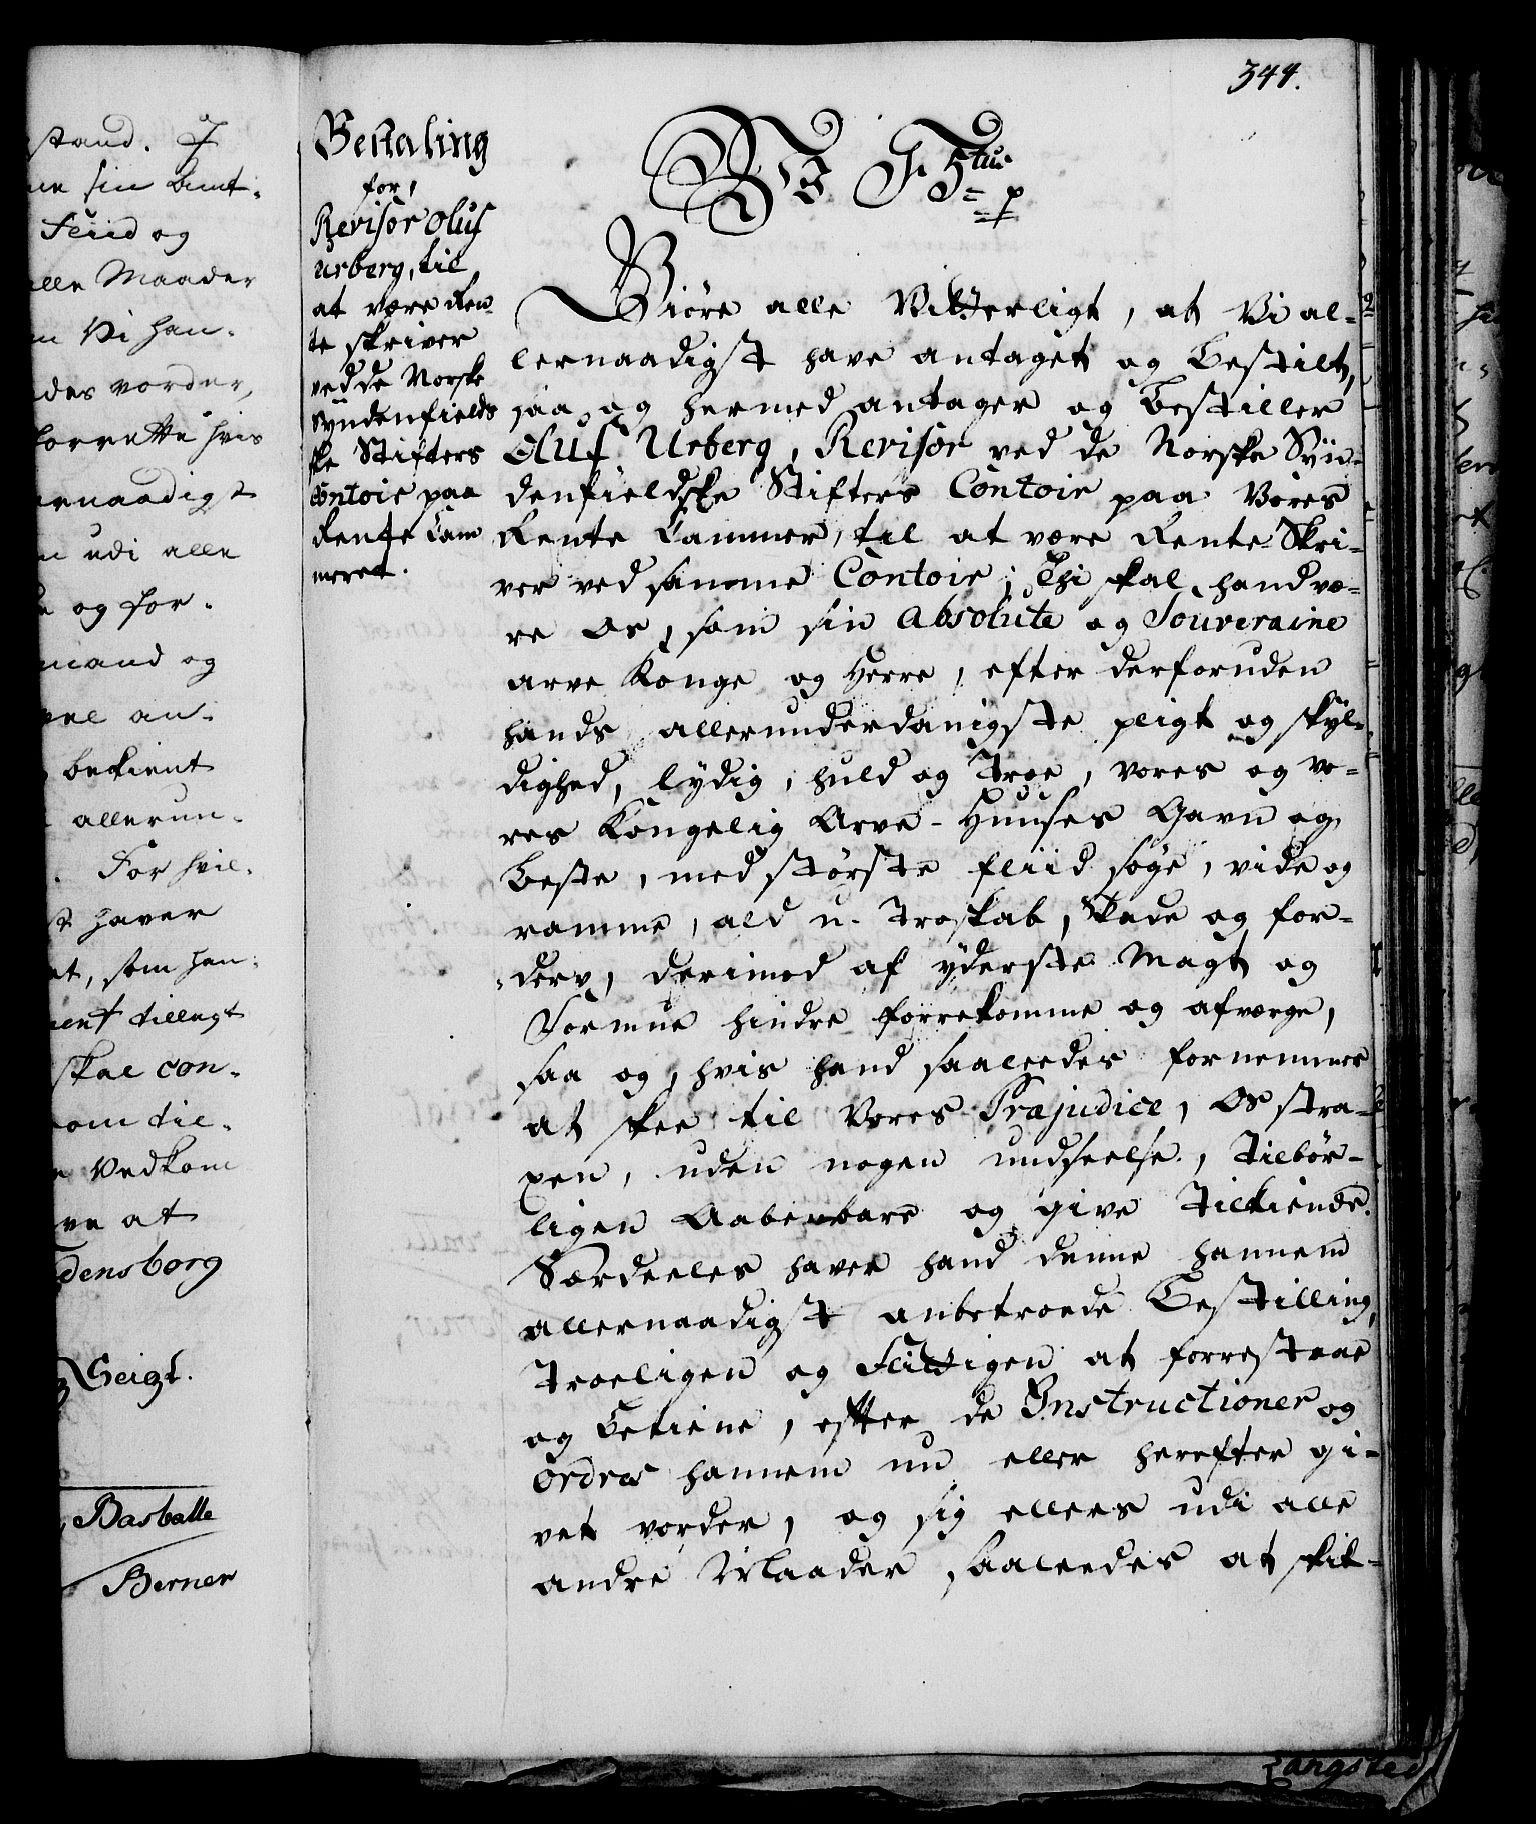 stand. I
ne sin Embt.
Fliid og
alle Maader
om Vi han-
des vorder,
forrette hvis
ernaadigst
n udi alle
og for-
mand og
vel an-
bekient
allerun-
For hvil-
st haver
et, som han-
ment tillagt
skal con-
om til-
e Vedkom
ve at
densborg
Seigl.
Basballe
Berner
344.
Bestaling
for,
Revisor Oluf
Urberg, til
at være Ren-
te skriver
ved de Norske
Syndenfields
ske Stifters
Contoir paa
Rente Cam
meret.
W F 5tus
p
Giøre alle Vitterligt, at Vi al-
lernaadigst have antaget og bestilt,
saa og hermed antager og bestiller
Oluf Urberg, Revisor ved de Norske Syn-
denfieldske Stifters Contoir paa Vores
Rente Cammer, til at være Rente-Skri-
ver ved samme Contoir; Thi skal hand væ-
re Os, som sin Absolute og Souveraine
arve Konge og Herre, efter derforuden
hands allerunderdanigste pligt og skyl-
dighed, lydig, huld og Troe, vores og vo-
res Kongelig Arve-Huuses Gavn og
beste, med største fliid søge, vide og
ramme, ald u-Troskab, Skade og for-
derv, derimod af yderste Magt og
Formue hindre forrekomme og afværge,
saa og, hvis hand saaleedes fornemmer
at skee til Vores Præjudice, Os stra-
xen, uden nogen undseelse, Tilbør-
ligen Aabenbare og give Tilkiende.
Særdeeles haver hand denne hannem
allernaadigst anbetroede Bestilling,
Troeligen og Flittigen at forrestaae
og betiene, efter de Instructioner og
Ordres hannem nu eller herefter gi-
vet vorder, og sig ellers udi alle
andre Maader saaleedes at skik-
angsted